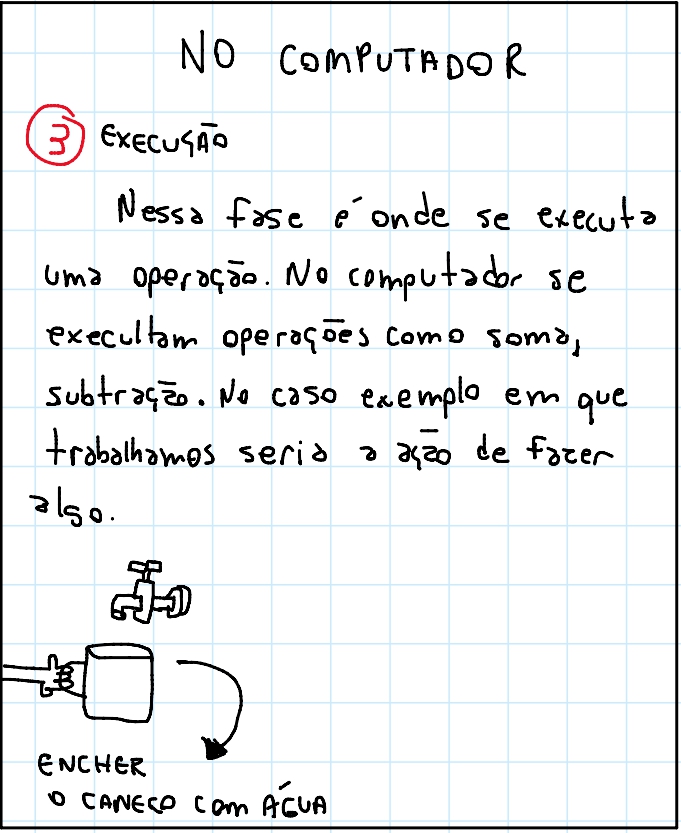 NO COMPUTADOR
3 EXECUÇÃO
Nessa fase é onde se executa
uma operação. No computador se
execultam operações como soma,
subtração. No caso exemplo em que
trabalhamos seria a ação de fazer
algo.
ENCHER
O CANECO com ÁGUA